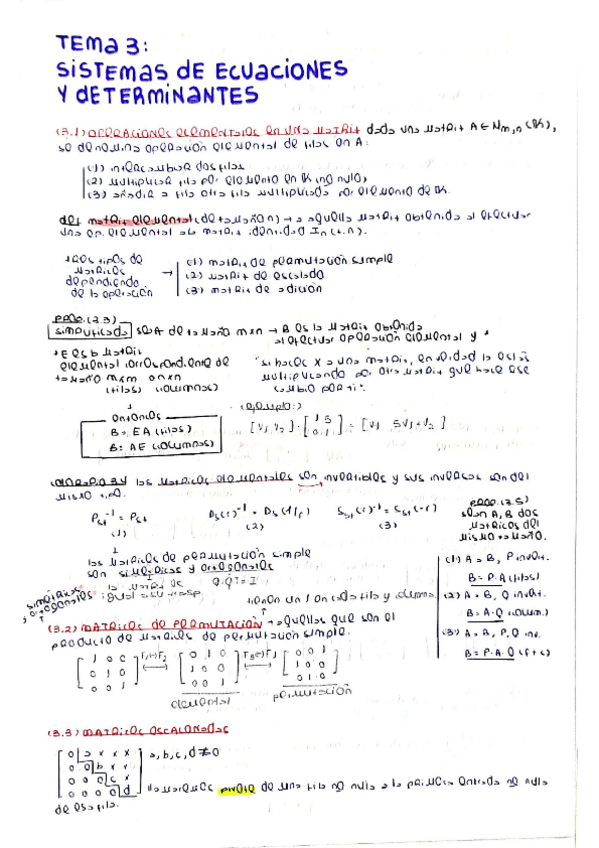 TEMA 3:
SISTEMAS DE ECUACIONES
Y DETERMINANTES
(3.1) OPERACIONES ELEMENTALES EN UNA MATRIZ dada una matriz A ∈ Mm,n (K),
se denomina operación elemental de filas en A:
(1) intercambiar dos filas
(2) multiplicar fila por elemento en K no nulo
(3) añadir a fila otra fila multiplicada por elemento de K.
def matriz elemental (de tamaño n) → a aquella matriz obtenida al efectuar
una op. elemental a la matriz identidad In
tres tipos de
matrices
dependiendo
de la operación
(1) matriz de permutación simple
(2) matriz de escalado
(3) matriz de adición
PROP. (3.3)
simplificada sea A de tamaño m×n → B es la matriz obtenida
al efectuar operación elemental y
E es la matriz
elemental correspondiente de
tamaño m×m o n×n
(filas) (columnas)
"si haces X a una matriz, en realidad la estás
multiplicando por otra matriz que hace ese
cambio por ti".
entonces
B = EA (filas)
B = AE (columnas)
(ejemplo:)
[v1 v2] · [1 5
0 1] = [v1 5v1+v2]
las matrices elementales son invertibles y sus inversas son del
mismo tipo.
Pst⁻¹ = Pst
Ds(r)⁻¹ = Ds(1/r)
Sst(r)⁻¹ = Sst(-r)
(1) (2) (3)
PROP. (3.5)
sean A, B dos
matrices del
mismo tamaño.
las matrices de permutación simple
son simétricas y ortogonales
simétricas: la matriz es igual a su trasp.
ortogonales: Q·QT = I
tienen un 1 en cada fila y columna
(1) A → B, P invert.
B = P·A (filas)
(2) A → B, Q invert.
B = A·Q (colum.)
(3) A → B, P, Q inv.
B = P·A·Q (f+c)
(3.2) MATRICES DE PERMUTACIÓN → aquellas que son el
producto de matrices de permutación simple.
elemental
permutación
(3.3) MATRICES ESCALONADAS
0 a x x x
0 0 b x x
0 0 0 c x
0 0 0 0 d
a, b, c, d ≠ 0
llamaremos pivote de una fila no nula a la primera entrada no nula
de esa fila.